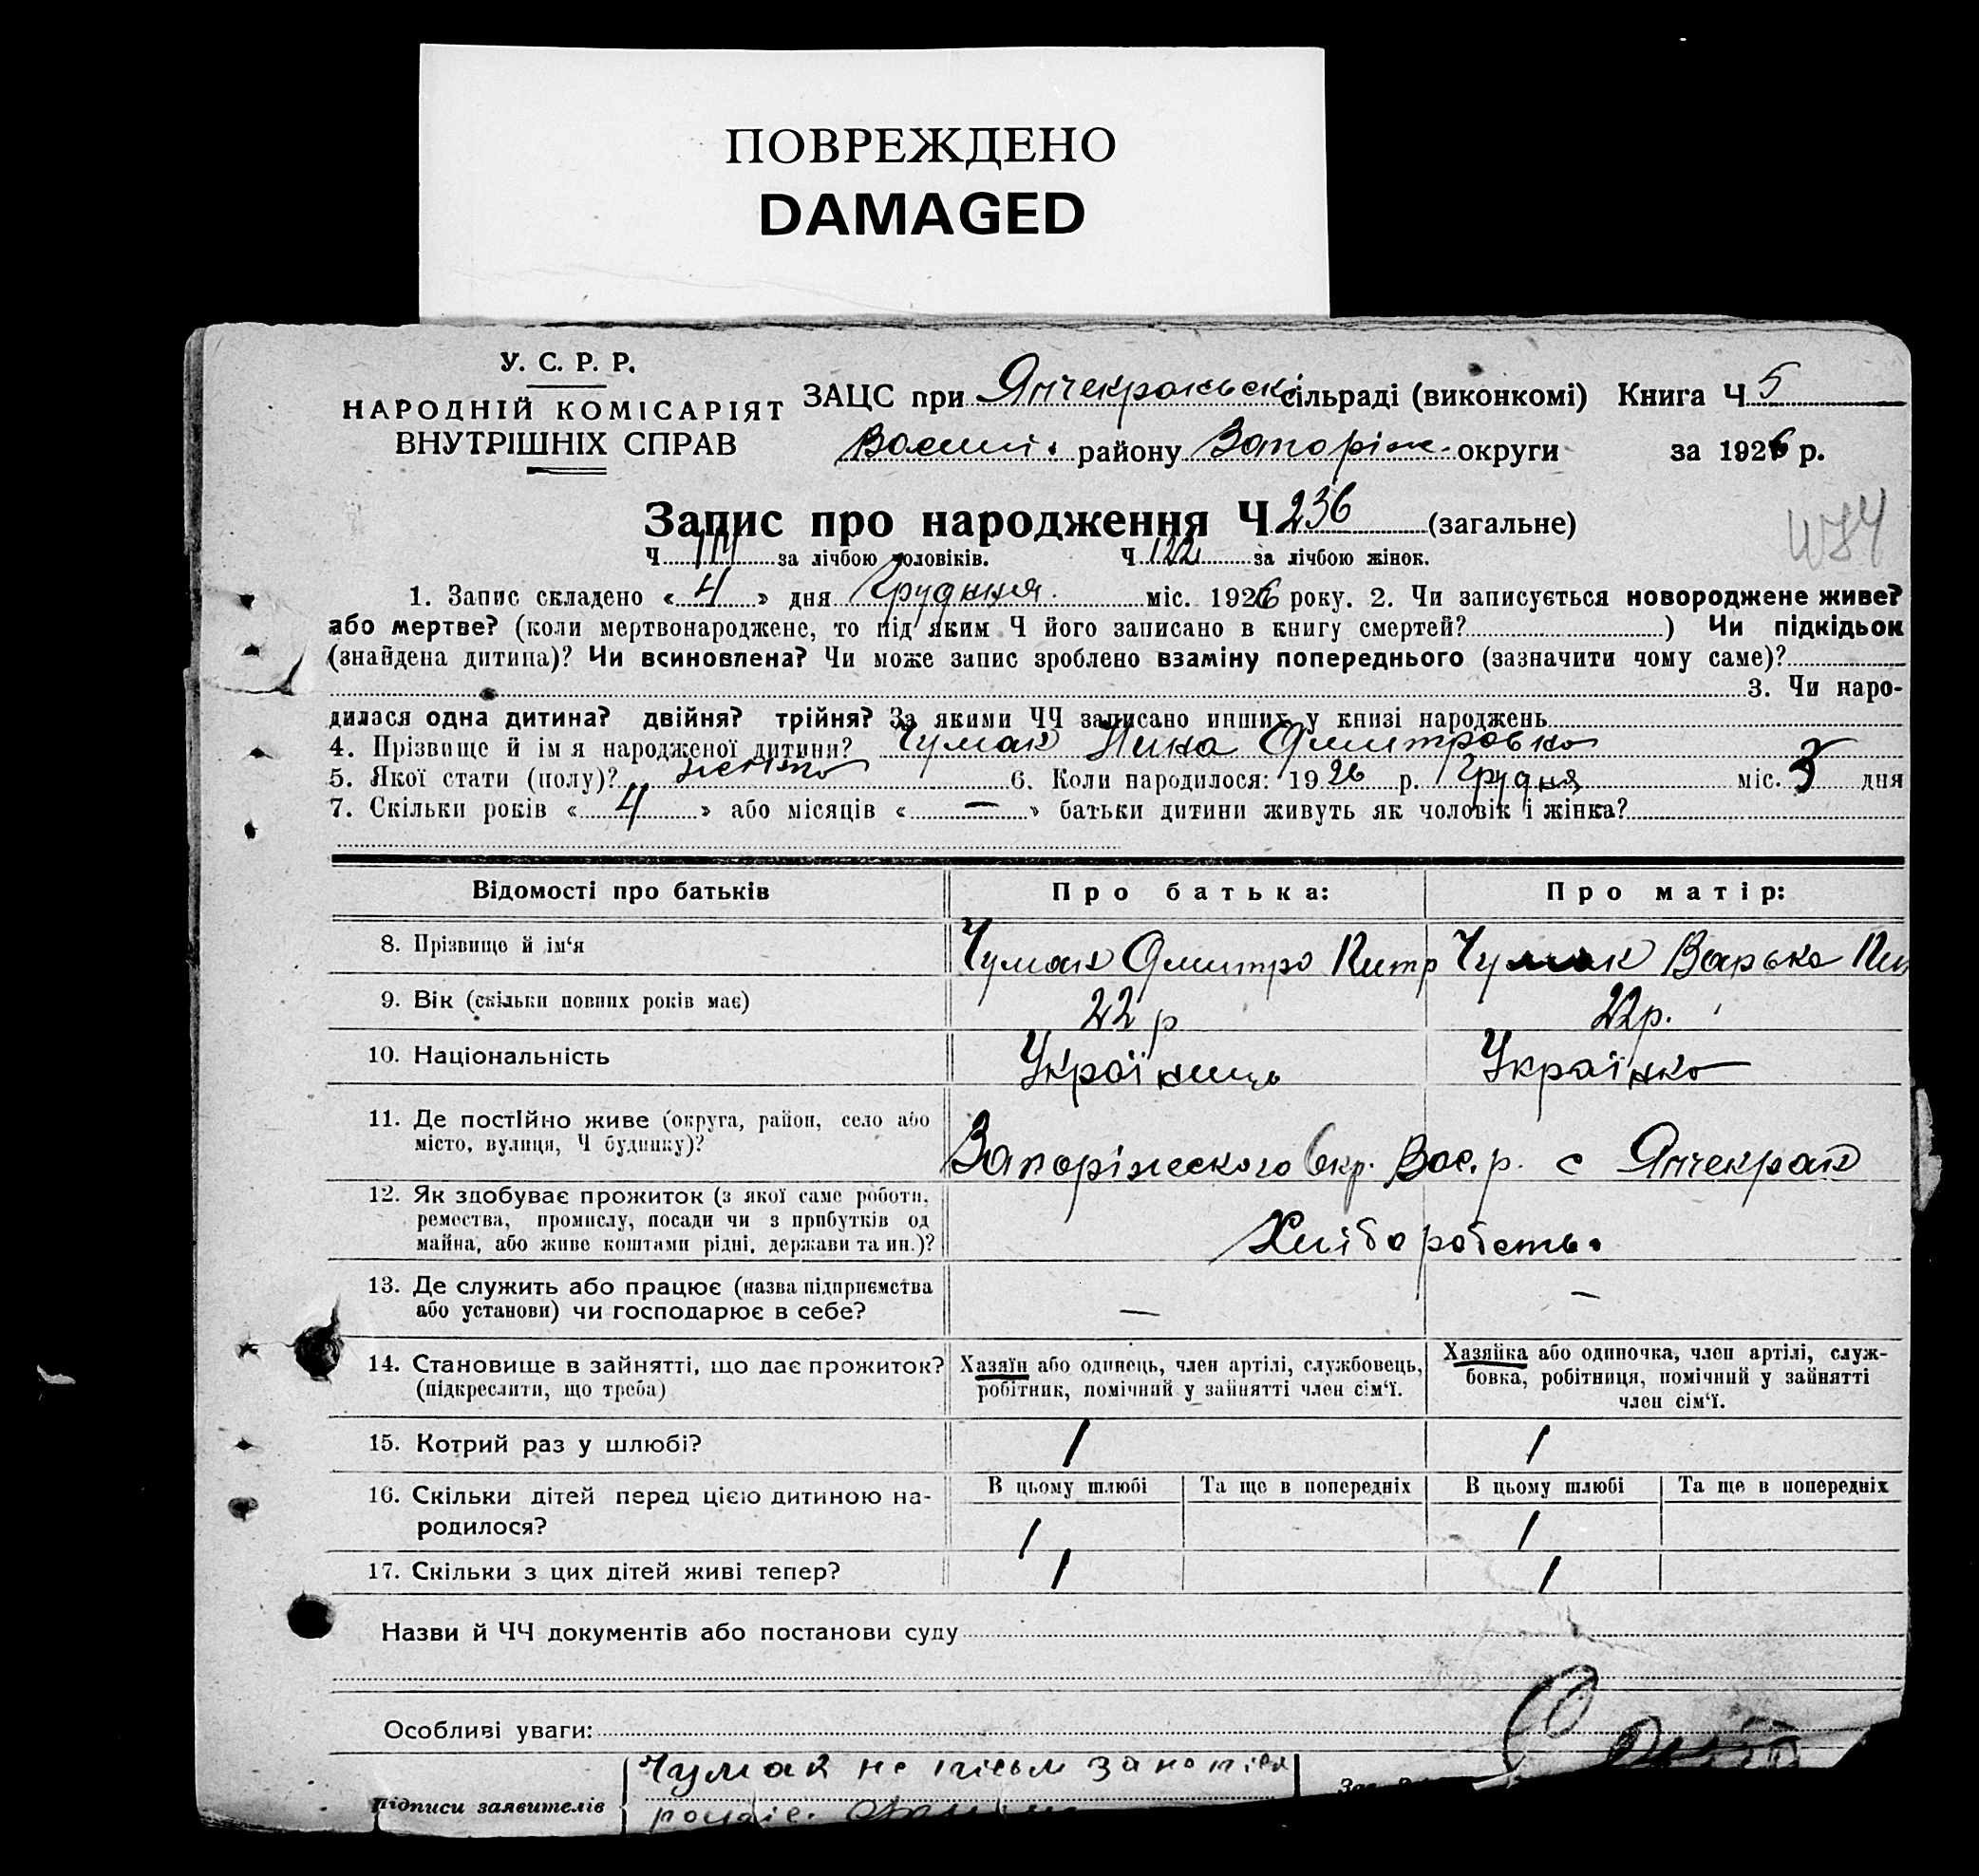 ПОВРЕЖДЕНО
DAMAGED
У. С. Р. Р.
НАРОДНІЙ КОМІСАРІЯТ
ВНУТРІШНІХ СПРАВ
ЗАЦС при Янчекракськ сільраді (виконкомі) Книга Ч 5
Васили. району Запоріж. округи за 1926 р.
Запис про народження Ч 236 (загальне)
Ч 114 за лічбою чоловіків. Ч 122 за лічбою жінок.
1. Запис складено « 4 » дня Грудння міс. 1926 року. 2. Чи записується новороджене живе?
або мертве? (коли мертвонароджене, то під яким Ч його записано в книгу смертей? ) Чи підкідьок
(знайдена дитина)? Чи всиновлена? Чи може запис зроблено взаміну попереднього (зазначити чому саме)?
3. Чи наро-
дилася одна дитина? двійня? трійня? За якими ЧЧ записано инших у книзі народжень
4. Прізвище й ім я народженої дитини? Чумак Нина Дмитровна
5. Якої стати (полу)? 6. Коли народилося: 19 26 р. Грудня міс. 3 дня
7. Скільки років « 4 » або місяців « — » батьки дитини живуть як чоловік і жінка?
Відомості про батьків Про батька: Про матір:
8. Прізвище й ім‘я Чумак Дмитро Питр Чумак Варька
9. Вік (скільки повних років має) 22 р 22р.
10. Національність Українець Українка
11. Де постійно живе (округа, район, село або
місто, вулиця, Ч будинку)?
Запоріжского Окр. Вас. р. с Янчекрак
12. Як здобуває прожиток (з якої саме роботи,
ремества, промислу, посади чи з прибутків од
майна, або живе коштами рідні, держави та ин.)?
Хліборобств.
13. Де служить або працює (назва підприємства
або установи) чи господарює в себе?
— —
14. Становище в зайнятті, що дає прожиток?
(підкреслити, що треба)
Хазяїн або одинець, член артілі, службовець,
робітник, помічний у зайнятті член сім‘ї.
Хазяйка або одиночка, член артілі, служ-
бовка, робітниця, помічний у зайнятті
член сім‘ї.
15. Котрий раз у шлюбі? 1 1
16. Скільки дітей перед цією дитиною на-
родилося?
В цьому шлюбі Та ще в попередніх В цьому шлюбі Та ще в попередніх
1 1
17. Скільки з цих дітей живі тепер? 1 1
Назви й ЧЧ документів або постанови суду
Особливі уваги:
Підписи заявителів
Чумак